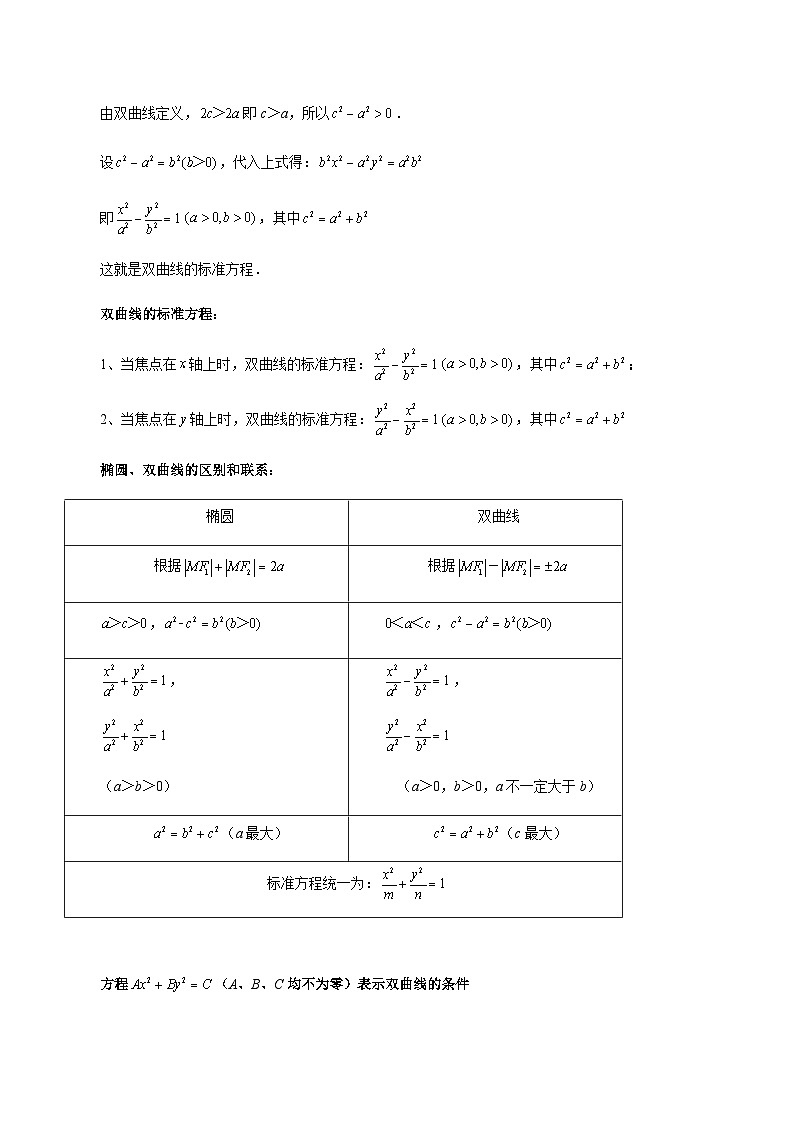 由双曲线定义，2c＞2a 即 c＞a，所以 c² − a² > 0．
设 c² − a² = b²(b＞0)，代入上式得：b²x² − a²y² = a²b²
即 x²/a² − y²/b² = 1 (a > 0, b > 0)，其中 c² = a² + b²
这就是双曲线的标准方程．
双曲线的标准方程：
1、当焦点在 x 轴上时，双曲线的标准方程：x²/a² − y²/b² = 1 (a > 0, b > 0)，其中 c² = a² + b²；
2、当焦点在 y 轴上时，双曲线的标准方程：y²/a² − x²/b² = 1 (a > 0, b > 0)，其中 c² = a² + b²
椭圆、双曲线的区别和联系：
椭圆 双曲线
根据 |MF₁| + |MF₂| = 2a 根据 |MF₁| − |MF₂| = ±2a
a＞c＞0，a² - c² = b²(b＞0) 0＜a＜c，c² − a² = b²(b＞0)
x²/a² + y²/b² = 1， x²/a² − y²/b² = 1，
y²/a² + x²/b² = 1 y²/a² − x²/b² = 1
（a＞b＞0） （a＞0，b＞0，a 不一定大于 b）
a² = b² + c²（a 最大） c² = a² + b²（c 最大）
标准方程统一为：x²/m + y²/n = 1
方程 Ax² + By² = C（A、B、C 均不为零）表示双曲线的条件